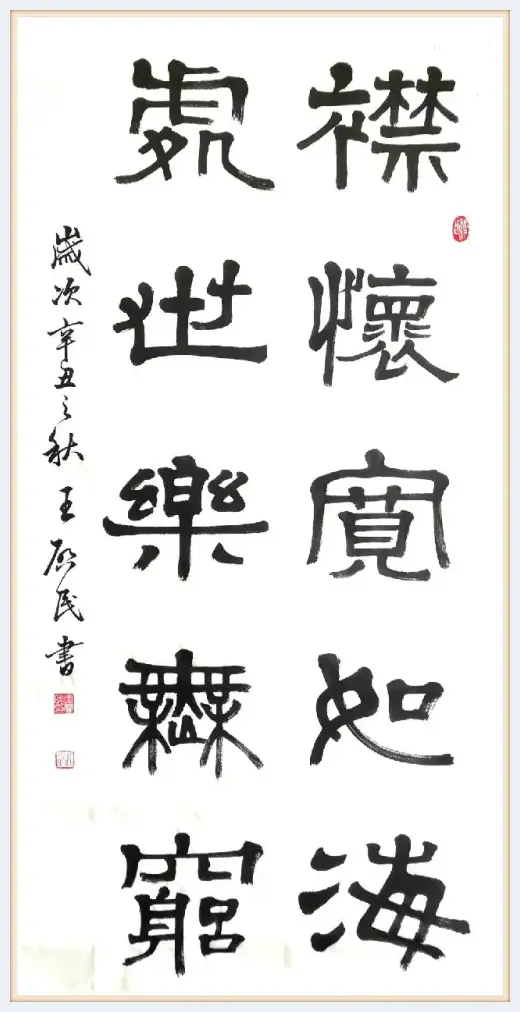 襟懷寬如海
處世樂無窮
歲次辛丑之秋王啟民書